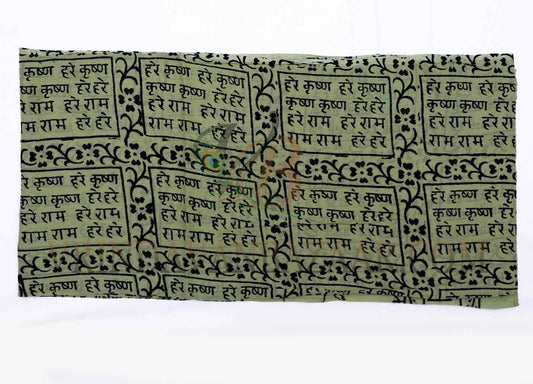 हरे कृष्ण हरे कृष्ण
कृष्ण कृष्ण हरे हरे
हरे राम हरे राम
राम राम हरे हरे
हरे कृष्ण हरे कृष्ण
कृष्ण कृष्ण हरे हरे
हरे राम हरे राम
राम राम हरे हरे
हरे कृष्ण हरे कृष्ण
कृष्ण कृष्ण हरे हरे
हरे राम हरे राम
राम राम हरे हरे
हरे कृष्ण
कृष्ण कृष्ण
हरे राम हरे
राम राम हरे
हरे कृष्ण हरे कृष्ण
कृष्ण कृष्ण हरे हरे
हरे राम हरे राम
राम राम हरे हरे
हरे कृष्ण हरे कृष्ण
कृष्ण कृष्ण हरे हरे
हरे राम हरे राम
राम राम हरे हरे
हरे कृष्ण हरे कृष्ण
कृष्ण कृष्ण हरे हरे
हरे राम हरे राम
राम राम हरे हरे
हरे कृष्ण हरे
कृष्ण कृष्ण हरे
हरे राम हरे
राम राम हरे
हरे कृष्ण हरे कृष्ण
हरे कृष्ण हरे कृष्ण
हरे कृष्ण